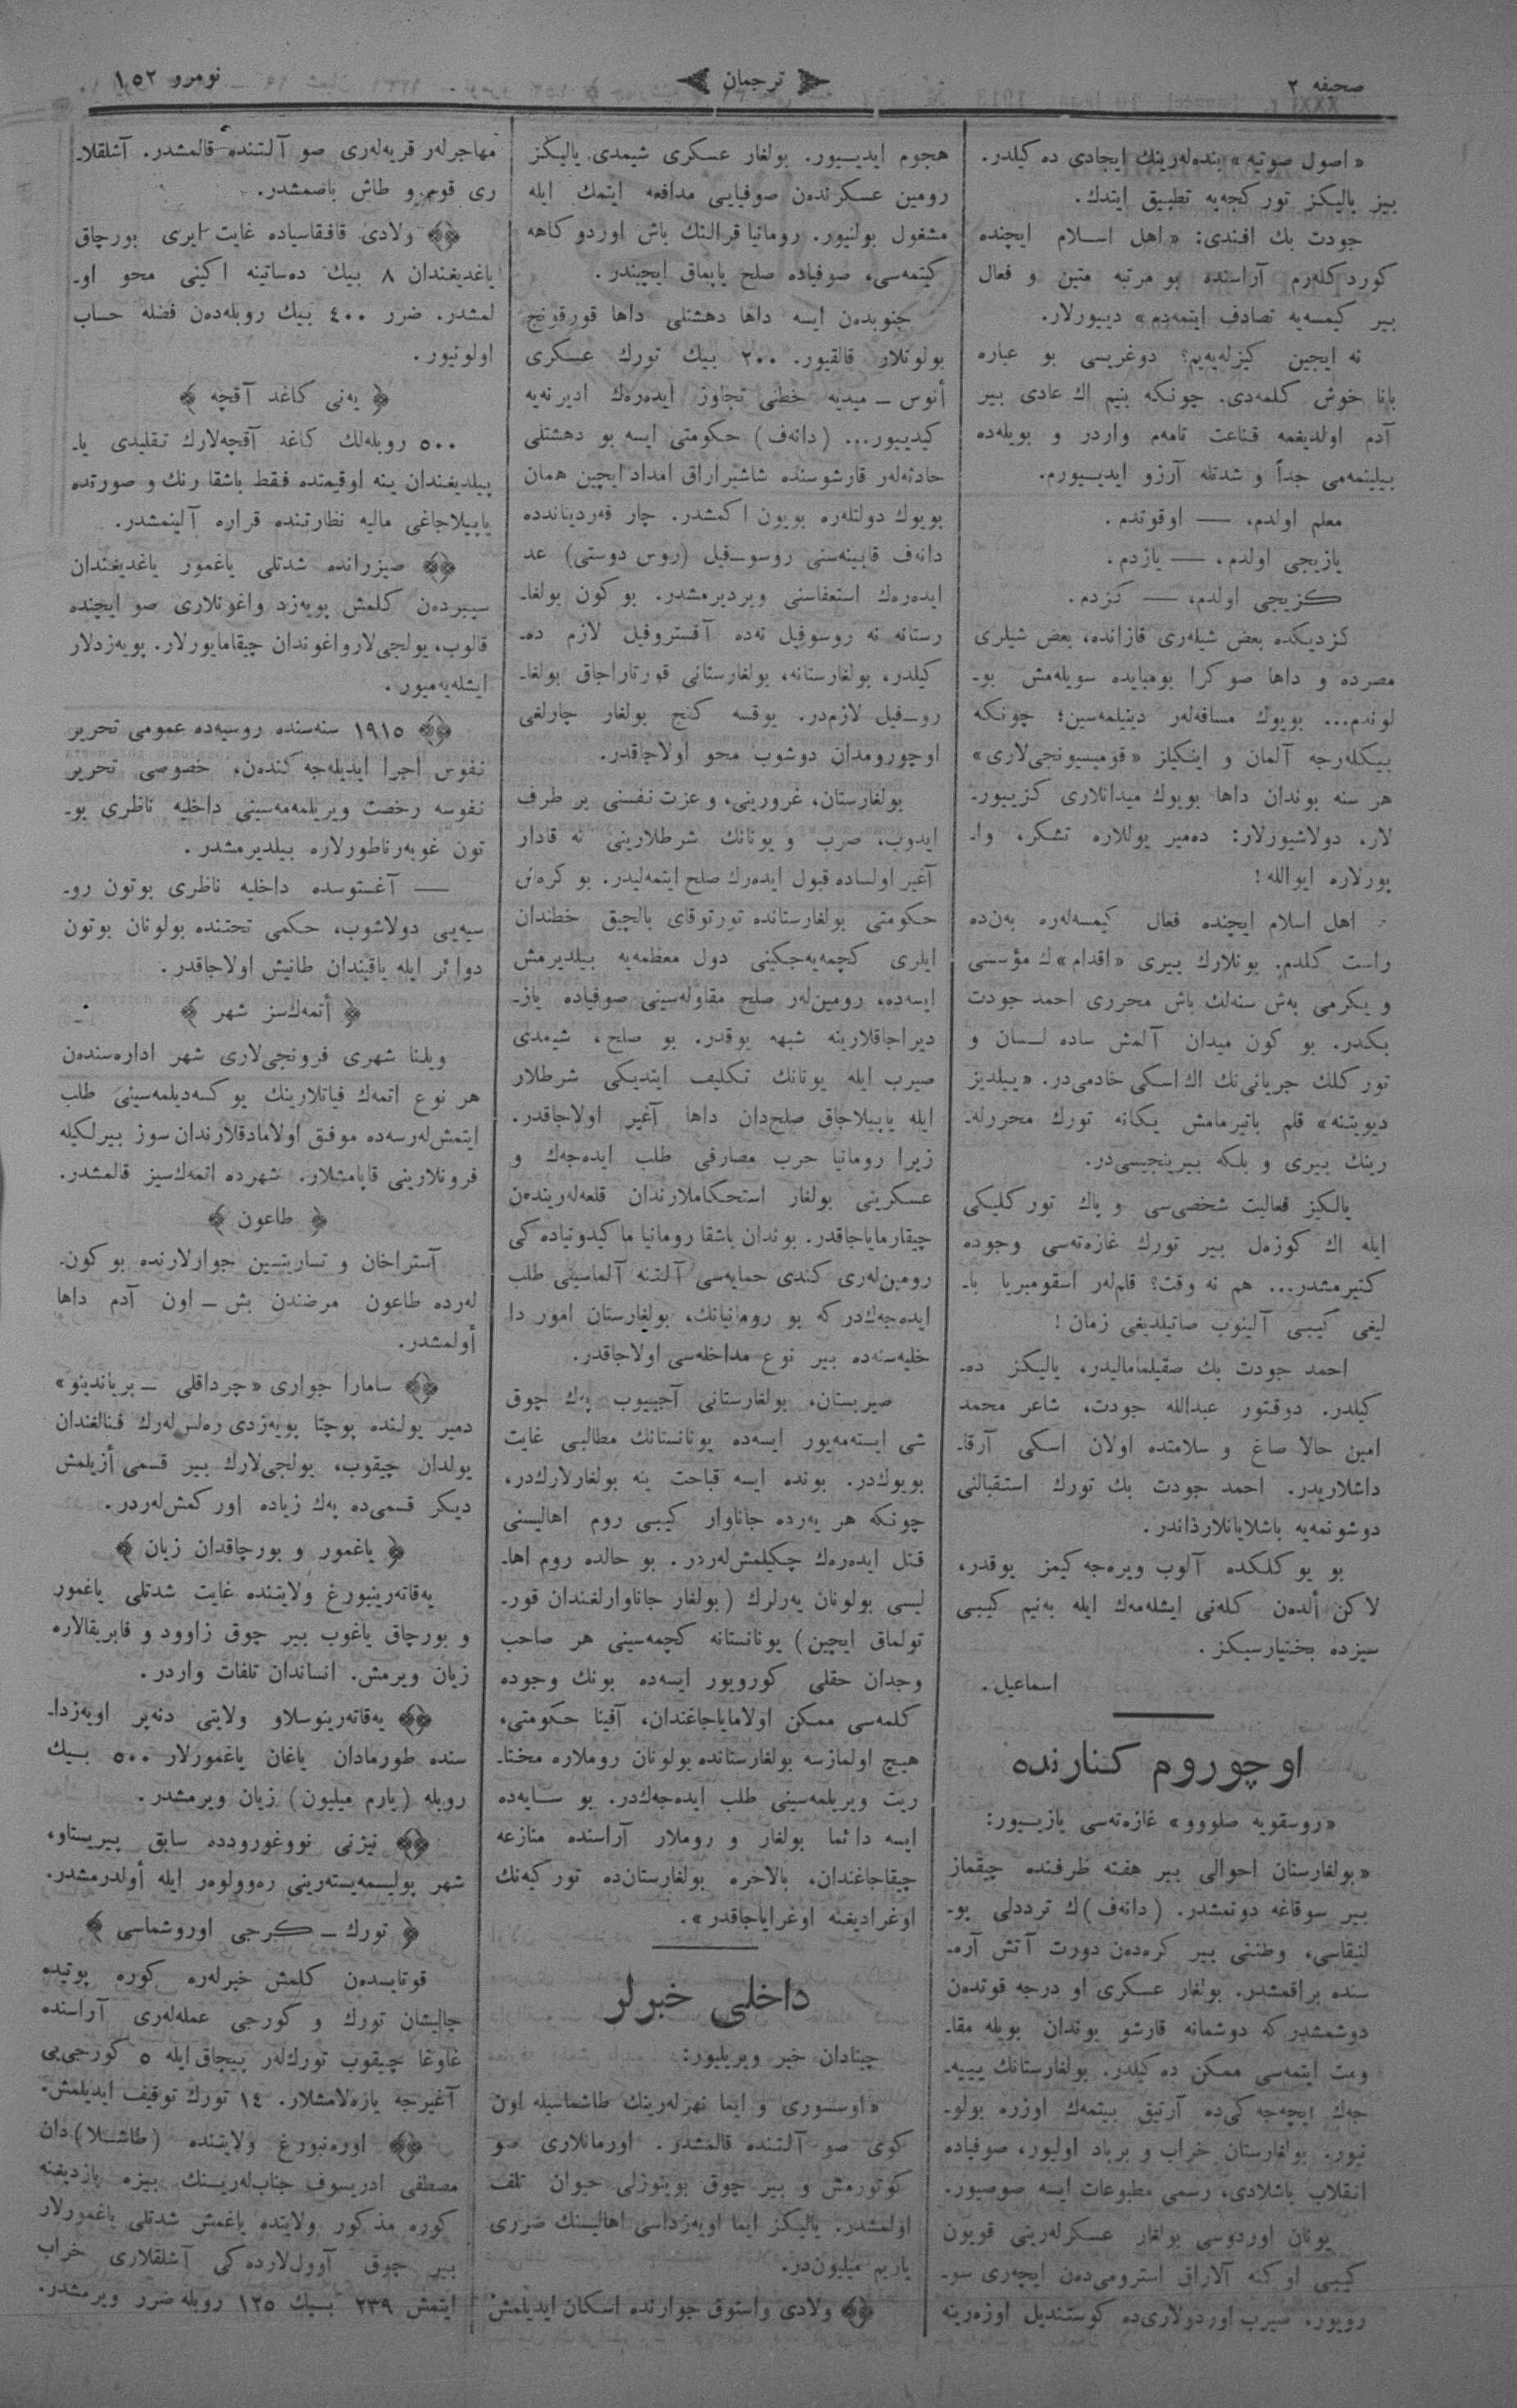 صحیفه ٢
ترجمان
نومرو ١٥٢
« اصول صوتیه » بنده‌لەرینك ایجادی ده كیلدر.
بیز یالیكز تورکجه‌یه تطبیق ایتدك.
جودت بك افندی: « اهل اسلام ایچنده
کوردکلەرم آراسنده بو مرتبه متین و فعال
بیر کیمسه‌یه تصادف ایتمه‌دم » دیییورلار.
نه ایچین کیزلەیەیم؟ دوغریسی بو عباره
بانا خوش کلمه‌دی. چونکه بنیم اك عادی بیر
آدم اولدیغمه قناعت تامه‌م واردر و بویله‌ده
بیلینمه‌می جداً و شدتله آرزو ایدییورم.
معلم اولدم، — اوقوتدم.
یازیجی اولدم، — یازدم.
کزیجی اولدم، — کزدم.
کزدیکده بعض شیلەری قازانده، بعض شیلری
مصرده و داها صوکرا بومبایده سویلەمش بو-
لوندم... بویوك مسافه‌لەر دینیلمه‌سین؛ چونکه
بیکلەرجه آلمان و اینکیلز « قومیسیونجی‌لاری »
هر سنه بوندان داها بویوك میدانلاری کزییور-
لار، دولاشیورلار: ده‌میر یوللاره تشکر، وا-
پورلاره ایوالله !
اهل اسلام ایچنده فعال کیمسه‌لەره بەن‌ده
راست کلدم. بونلارك بیری « اقدام » ك مؤسسی
و یکرمی بەش سنه‌لك باش محرری احمد جودت
بکدر. بو کون میدان آلمش ساده لسان و
تورکلك جریانی‌نك اك اسکی خادمی‌در. « ییلدیز
دیویتنه » قلم باتیرمامش یکانه تورك محررلە-
رینك بیری و بلکه بیرینجیسی‌در.
یالکیز فعالیت شخصی‌سی و پاك تورکلیکی
ایله اك کوزەل بیر تورك غازه‌ته‌سی وجوده
کتیرمشدر... هم نه وقت؟ قلم‌لەر اسقومبریا با-
لیغی کیبی آلینوب صاتیلدیغی زمان !
احمد جودت بك صقیلمامالیدر، یالیکز ده-
کیلدر. دوقتور عبدالله جودت، شاعر محمد
امین حالا صاغ و سلامتده اولان اسکی آرقا-
داشلاریدر. احمد جودت بك تورك استقبالنی
دوشونمه‌یه باشلایانلارداندر.
بو یوکلکده آلوب ویره‌جه کیمز یوقدر،
لاکن ألدەن کله‌نی ایشلەمەك ایله بەنیم کیبی
سیزده بختیارسیکز.
اسماعیل.
اوچوروم کنارنده
« روسقویه صلووو » غازه‌ته‌سی یازییور:
« بولغارستان احوالی بیر هفته ظرفنده چیقماز
بیر سوقاغه دونمشدر. (دانەف)ك ترددلی پو-
لتیقاسی، وطننی بیر کره‌دەن دورت آتش آره-
سنده براقمشدر. بولغار عسکری او درجه قوتدەن
دوشمشدر که دوشمانه قارشو بوندان بویله مقا-
ومت ایتمه‌سی ممکن ده کیلدر. بولغارستانك ییيه-
جەك ایچه‌جه کی‌ده آرتیق بیتمەك اوزره بولو-
نیور. بولغارستان خراب و برباد اولیور، صوفیاده
انقلاب باشلادی، رسمی مطبوعات ایسه صوصیور.
یونان اوردوسی بولغار عسکرلەرینی قویون
کیبی اوکنه آلاراق استرومی‌دەن ایچه‌ری سو-
رویور. صیرب اوردولاری‌ده کوستندیل اوزەرینه
هجوم ایدییور. بولغار عسکری شیمدی یالیکز
رومین عسکرندەن صوفیایی مدافعه ایتمك ایله
مشغول بولنیور. رومانیا قرالنك باش اوردو کاهه
کیتمه‌سی، صوفیاده صلح یاپماق ایچیندر.
جنوبدەن ایسه داها دهشتلی داها قورقونج
بولوتلار قالقیور. ٢٠٠ بیك تورك عسکری
أنوس – میدیه خطنی تجاوز ایدەرەك ادیرنەیه
کیدییور... (دانەف) حکومتی ایسه بو دهشتلی
حادثه‌لەر قارشوسنده شاشیراراق امداد ایچین همان
بویوك دولتلەره بویون اکمشدر. چار فەردیناندده
دانەف قابینه‌سنی روسو-فیل (روس دوستی) عد
ایدەرەك استعفاسنی ویردیرمشدر. بو کون بولغا-
رستانه نه روسوفیل نه‌ده آفستروفیل لازم ده-
کیلدر، بولغارستانه، بولغارستانی قورتاراجاق بولغا-
رو-فیل لازم‌در. یوقسه کنج بولغار چارلغی
اوچورومدان دوشوب محو اولاجاقدر.
بولغارستان، غرورینی، و عزت نفسنی بر طرف
ایدوب، صرب و یونانك شرطلارینی نه قادار
آغیر اولساده قبول ایدەرك صلح ایتمه‌لیدر. بوکرەش
حکومتی بولغارستانده تورتوقای بالچیق خطندان
ایلری کچمه‌یه‌جکینی دول معظمه‌یه بیلدیرمش
ایسه‌ده، رومین‌لەر صلح مقاوله‌سینی صوفیاده یاز-
دیراجاقلارینه شبهه یوقدر. بو صلح، شیمدی
صیرب ایله یونانك تکلیف ایتدیکی شرطلار
ایله یاپیلاجاق صلح‌دان داها آغیر اولاجاقدر.
زیرا رومانیا حرب مصارفی طلب ایدەجەك و
عسکرینی بولغار استحکاملارندان قلعه‌لەریندەن
چیقارمایاجاقدر. بوندان باشقا رومانیا ماکیدونیاده کی
رومین‌لەری کندی حمایه‌سی آلتنه آلماسینی طلب
ایدەجەك‌در که بو رومانیانك، بولغارستان امور دا
خلیه‌سنه‌ده بیر نوع مداخله‌سی اولاجاقدر.
صیربستان، بولغارستانی آجییوب پەك چوق
شی ایسته‌مه‌یور ایسه‌ده یونانستانك مطالبی غایت
بویوك‌در. بونده ایسه قباحت ینه بولغارلارك‌در،
چونکه هر یەرده جاناوار کیبی روم اهالیسنی
قتل ایدەرەك چکیلمش‌لەردر. بو حالده روم اها-
لیسی بولونان یەرلرك (بولغار جاناوارلغندان قور-
تولماق ایچین) یونانستانه کچمه‌سینی هر صاحب
وجدان حقلی کورویور ایسه‌ده بونك وجوده
کلمه‌سی ممکن اولامایاجاغندان، آفینا حکومتی،
هیچ اولمازسه بولغارستانده بولونان روملاره مختا-
ریت ویریلمه‌سینی طلب ایدەجەك‌در. بو سایه‌ده
ایسه دائما بولغار و روملار آراسنده منازعه
چیقاجاغندان، بالاخره بولغارستان‌ده تورکیه‌نك
اوغرادیغنه اوغرایاجاقدر ».
داخلی خبرلر
چیتادان خبر ویریلیور:
« اوسسوری و ایما نهرلەرینك طاشماسیله اون
کوی صو آلتنده قالمشدر. اورمانلاری صو
کوتورمش و بیر چوق بوینوزلی حیوان تلف
اولمشدر. یالیکز ایما اویەزداسی اهالیسنك ضرری
یاریم میلیون‌در.
ولادی واستوق جوارنده اسکان ایدیلمش
مهاجرلەر قریه‌لەری صو آلتنده قالمشدر. آشلقلا-
ری قوم و طاش باصمشدر.
ولادی قافقاسیاده غایت ایری بورچاق
یاغدیغندان ٨ بیك ده‌ساتینه اکینی محو او-
لمشدر. ضرر ٤٠٠ بیك روبله‌دەن فضله حساب
اولونیور.
یەنی کاغد آقچه
٥٠٠ روبله‌لك کاغد آقچه‌لارك تقلیدی یا-
پیلدیغندان ینه اوقیمتده فقط باشقا رنك و صورتده
یاپیلاجاغی مالیه نظارتنده قراره آلینمشدر.
صیزرانده شدتلی یاغمور یاغدیغندان
سیبردەن کلمش پویەزد واغونلاری صو ایچنده
قالوب، یولجی‌لار واغوندان چیقامایورلار. پویەزدلار
ایشله‌یه‌میور.
١٩١٥ سنه‌سنده روسیه‌ده عمومی تحریر
نفوس اجرا ایدیله‌جه کندەن، خصوصی تحریر
نفوسه رخصت ویریلمه‌مه‌سینی داخلیه ناظری بو-
تون غوبەرناطورلاره بیلدیرمشدر.
— آغستوسده داخلیه ناظری بوتون رو-
سیه‌یی دولاشوب، حکمی تحتنده بولونان بوتون
دوائر ایله یاقیندان طانیش اولاجاقدر.
أتمەك‌سز شهر
ویلنا شهری فرونجی‌لاری شهر اداره‌سندەن
هر نوع اتمەك فیاتلارینك یوکسه‌دیلمه‌سینی طلب
ایتمش‌لەرسه‌ده موفق اولامادقلارندان سوز بیرلکیله
فرونلارینی قاپامشلار. شهرده اتمەك‌سیز قالمشدر.
طاعون
آستراخان و تساریتسین جوارلارنده بو کون-
لەرده طاعون مرضندن بش – اون آدم داها
أولمشدر.
سامارا جواری « چرداقلی – بریاندینو »
دمیر یولنده پوچتا پویەزدی رەلس‌لەرك فنالغندان
یولدان چیقوب، یولجی‌لارك بیر قسمی أزیلمش
دیکر قسمی‌ده پەك زیاده اورکمش‌لەردر.
یاغمور و بورچاقدان زیان
یەقاتەرینبورغ ولایتنده غایت شدتلی یاغمور
و بورچاق یاغوب بیر چوق زاوود و فابریقالاره
زیان ویرمش. انساندان تلفات واردر.
یەقاتەرینوسلاو ولایتی دنەپر اویەزدا-
سنده طورمادان یاغان یاغمورلار ٥٠٠ بیك
روبله (یارم میلیون) زیان ویرمشدر.
نیژنی نووغورودده سابق پیریستاو،
شهر پولیسمه‌یسته‌رینی رەوولوەر ایله أولدرمشدر.
تورك – کرجی اوروشماسی
قوتایسدەن کلمش خبرلەره کوره پوتیده
چالیشان تورك و کورجی عمله‌لەری آراسنده
غاوغا چیقوب تورك‌لەر بیچاق ایله ٥ کورجی‌یی
آغیرجه یاره‌لامشلار. ١٤ تورك توقیف ایدیلمش.
اورەنبورغ ولایتنده (طاشلا) دان
مصطفی ادریسوف جناب‌لەرینك بیزه یازدیغنه
کوره مذکور ولایتده یاغمش شدتلی یاغمورلار
بیر چوق آوول‌لارده‌کی آشلقلاری خراب
ایتمش ٢٣٩ بیك ١٢٥ روبله ضرر ویرمشدر.